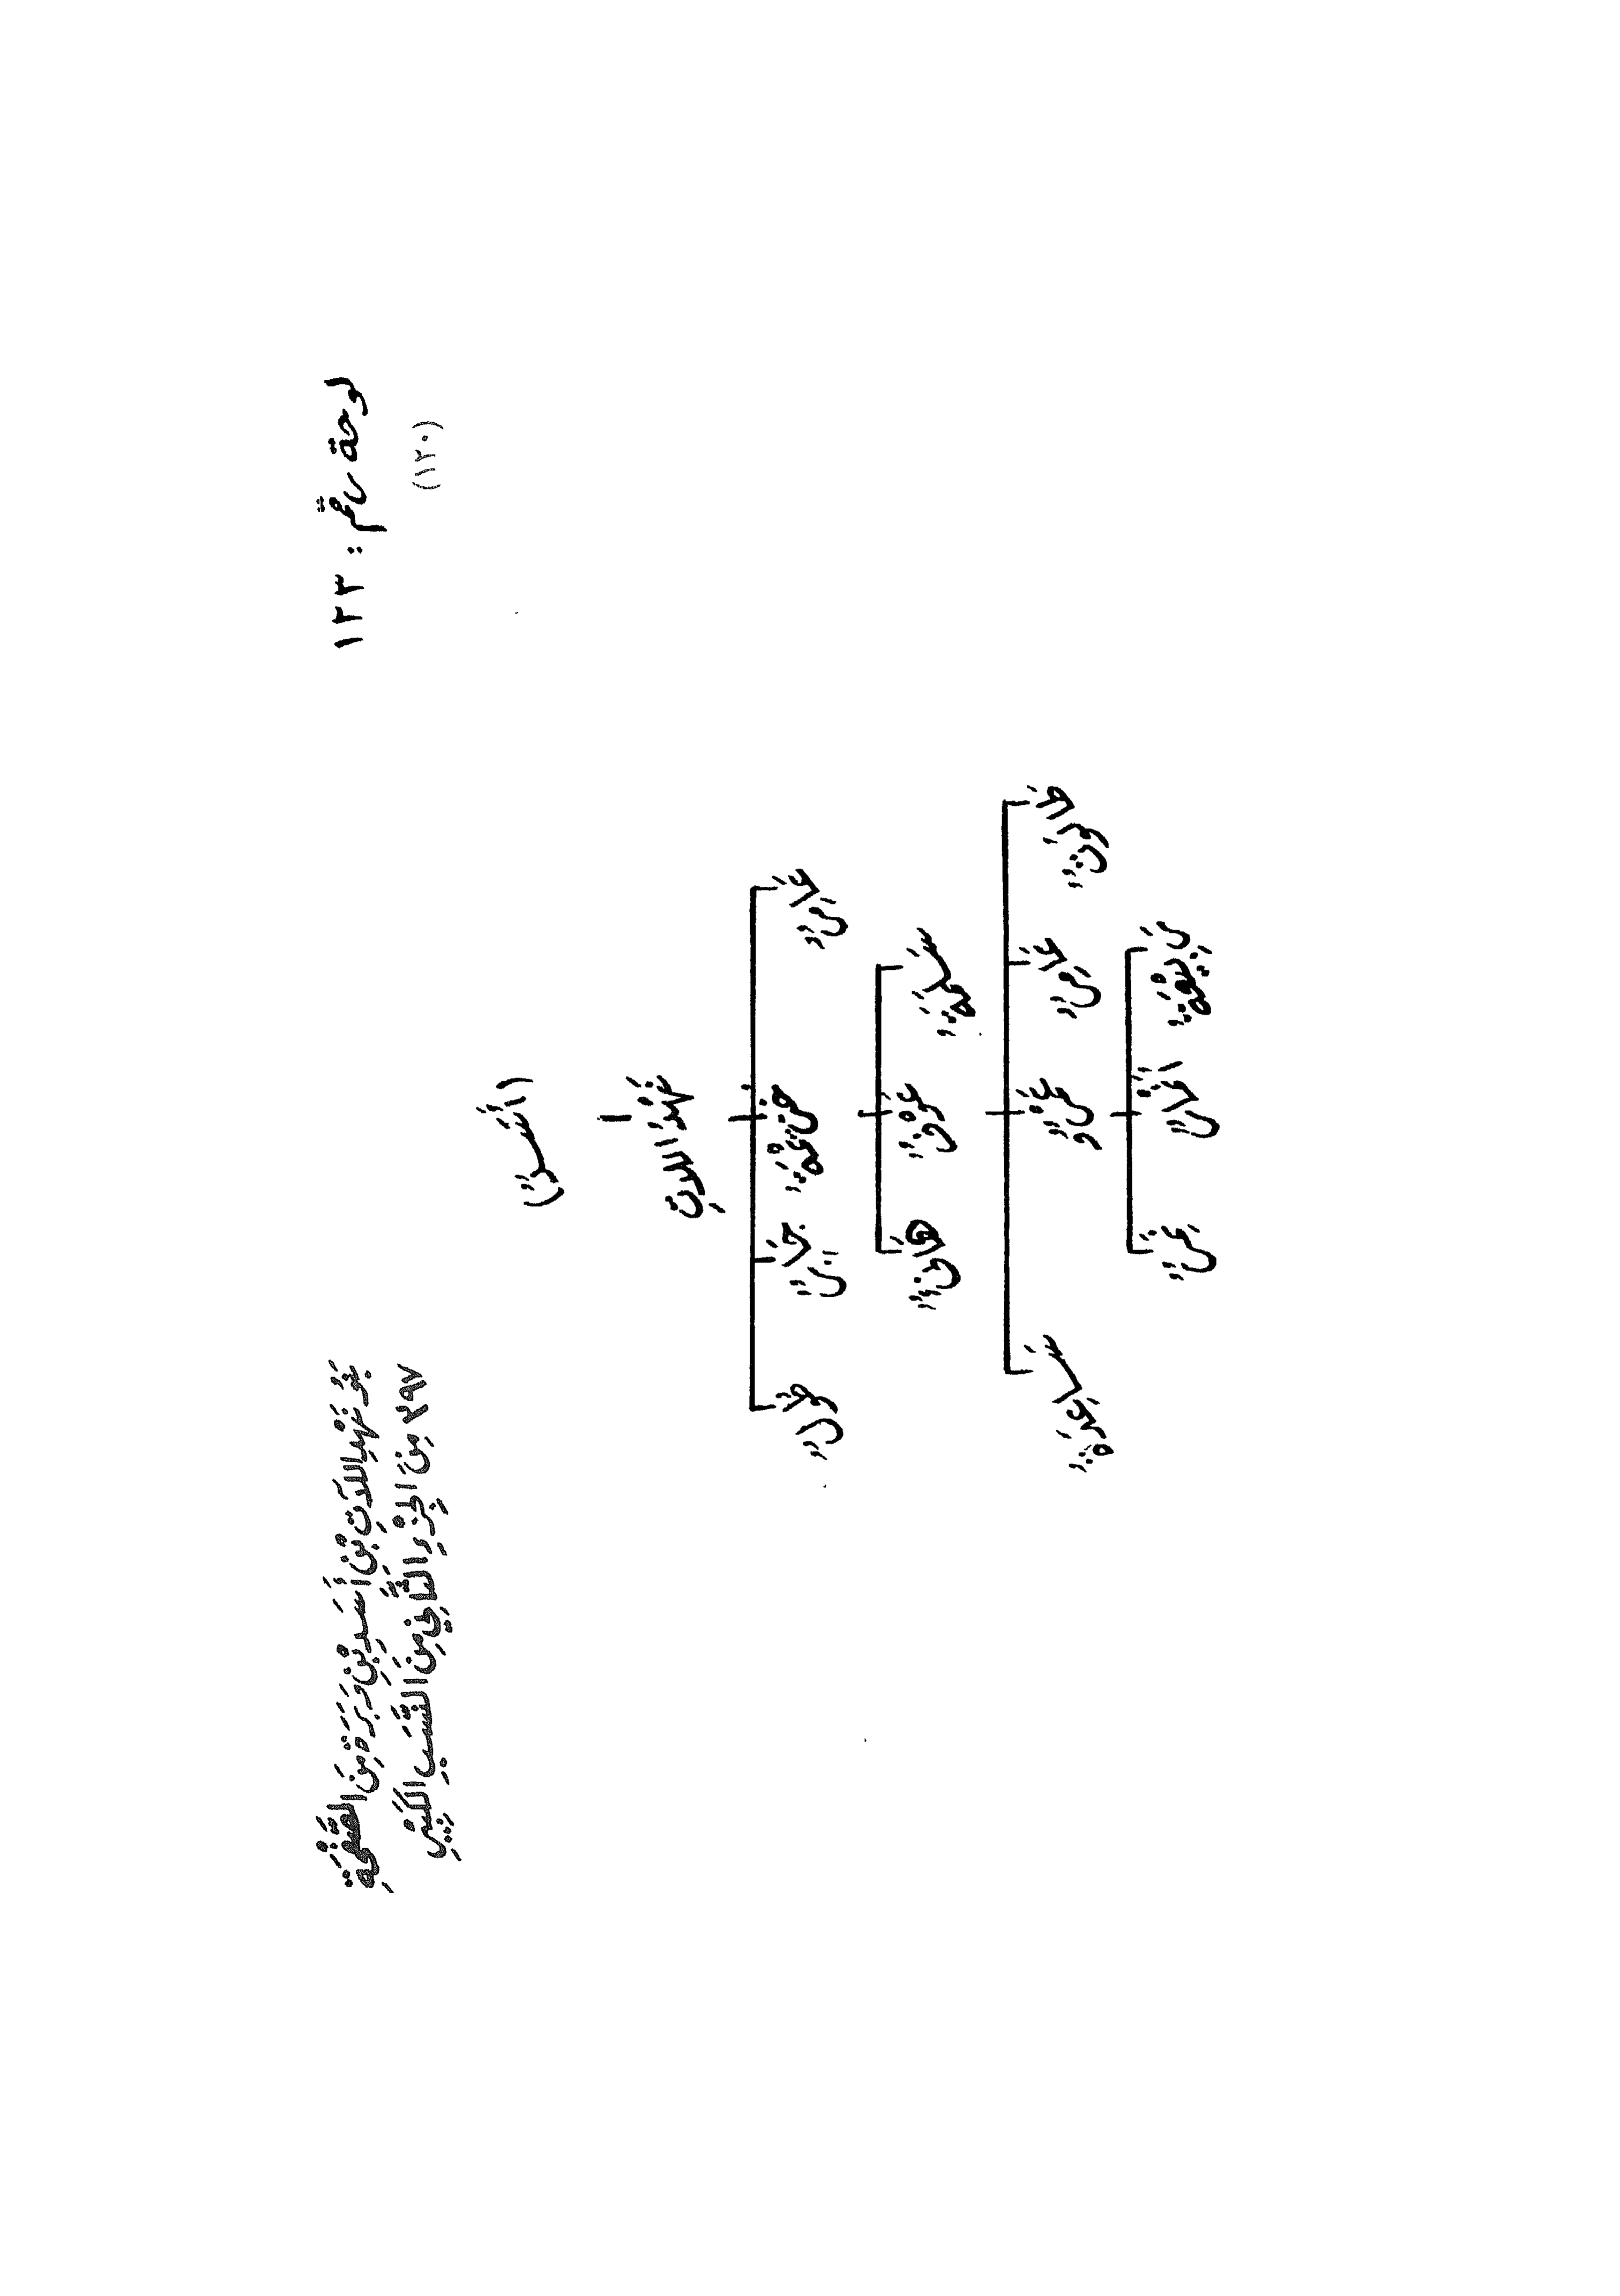 لوحة رقم : ١٢٣
(١٢٠)
بَنُو فَهْدِ اللَّاتِ بْنِ أَسَدِ بْنِ وَبَرَةَ مِنَ الصَّفْحَةِ
٣٩٧ مِنَ الجُزْءِ الثَّانِي مِنَ النَّسَبِ الكَبِيْرِ
(أَسَدٌ)
فَهْدُ اللَّاتِ
عَامِرٌ
خَثْعَمَةُ
جَابِرٌ
سَلَمَةُ
عَوْفٌ
هَانِئٌ
طَارِقٌ
عَامِرٌ
عَمْرٌو
سَاعِدَةُ
رَبِيْعَةُ